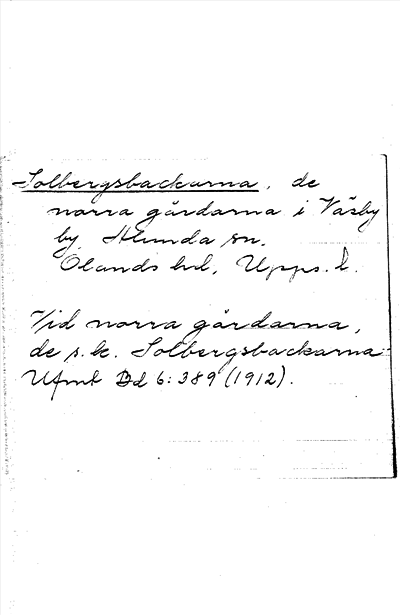 Solbergsbackarna, de
norra gårdarna i Väsby
by, Alunda sn.
Olands hd, Upps. l.
Vid norra gårdarna,
de s.k. Solbergsbackarna
Ufmt Bd 6: 389 (1912).